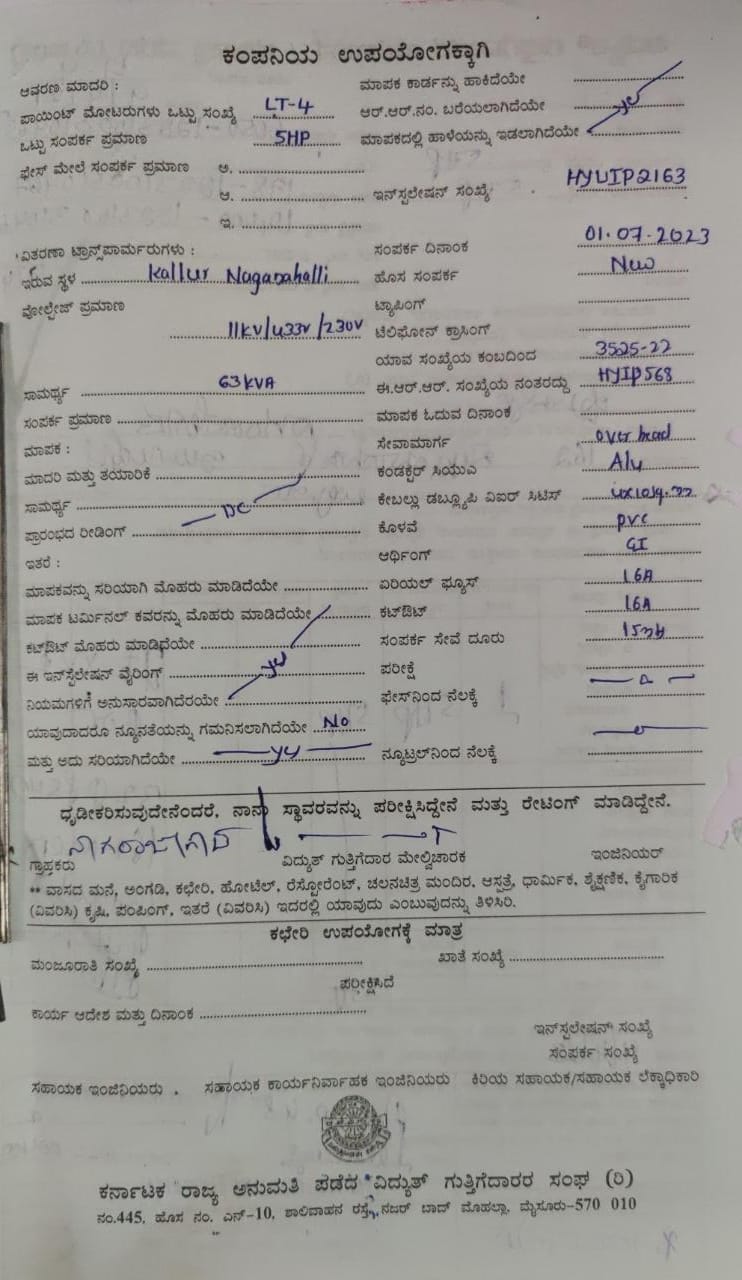 ಕಂಪನಿಯ ಉಪಯೋಗಕ್ಕಾಗಿ
ಆವರಣ ಮಾದರಿ :
ಮಾಪಕ ಕಾರ್ಡನ್ನು ಹಾಕಿದೆಯೇ
ಪಾಯಿಂಟ್ ಮೋಟರುಗಳು ಒಟ್ಟು ಸಂಖ್ಯೆ LT-4
ಆರ್.ಆರ್.ನಂ. ಬರೆಯಲಾಗಿದೆಯೇ
ಒಟ್ಟು ಸಂಪರ್ಕ ಪ್ರಮಾಣ 5HP
ಮಾಪಕದಲ್ಲಿ ಹಾಳೆಯನ್ನು ಇಡಲಾಗಿದೆಯೇ
ಫೇಸ್ ಮೇಲೆ ಸಂಪರ್ಕ ಪ್ರಮಾಣ ಅ.
ಆ.
ಇನ್‌ಸ್ಪಲೇಷನ್ ಸಂಖ್ಯೆ HYUIP2163
ಇ.
ವಿತರಣಾ ಟ್ರಾನ್ಸ್‌ಪಾರ್ಮರುಗಳು :
ಸಂಪರ್ಕ ದಿನಾಂಕ 01.07.2023
ಇರುವ ಸ್ಥಳ Kallur Naganahalli
ಹೊಸ ಸಂಪರ್ಕ New
ವೋಲ್ಟೇಜ್ ಪ್ರಮಾಣ
ಟ್ಯಾಪಿಂಗ್
11KV/433V/230V
ಟೆಲಿಫೋನ್ ಕ್ರಾಸಿಂಗ್
ಯಾವ ಸಂಖ್ಯೆಯ ಕಂಬದಿಂದ 3525-22
ಸಾಮರ್ಥ್ಯ 63KVA
ಈ.ಆರ್.ಆರ್. ಸಂಖ್ಯೆಯ ನಂತರದ್ದು HYIP568
ಸಂಪರ್ಕ ಪ್ರಮಾಣ
ಮಾಪಕ ಓದುವ ದಿನಾಂಕ
ಮಾಪಕ :
ಸೇವಾಮಾರ್ಗ over head
ಮಾದರಿ ಮತ್ತು ತಯಾರಿಕೆ
ಕಂಡಕ್ಟರ್ ಸಿಯುಎ Alu
ಸಾಮರ್ಥ್ಯ
ಕೇಬಲ್ಲು ಡಬ್ಲ್ಯೂಪಿ ವಿಐರ್ ಸಿಟಿಸ್
ಪ್ರಾರಂಭದ ರೀಡಿಂಗ್
ಕೊಳವೆ PVC
ಇತರೆ :
ಆರ್ಥಿಂಗ್ GI
ಮಾಪಕವನ್ನು ಸರಿಯಾಗಿ ಮೊಹರು ಮಾಡಿದೆಯೇ
ಏರಿಯಲ್ ಫ್ಯೂಸ್ 16A
ಮಾಪಕ ಟರ್ಮಿನಲ್ ಕವರನ್ನು ಮೊಹರು ಮಾಡಿದೆಯೇ
ಕಟ್‌ಔಟ್ 16A
ಕಟ್‌ಔಟ್ ಮೊಹರು ಮಾಡಿದೆಯೇ
ಸಂಪರ್ಕ ಸೇವೆ ದೂರು
ಈ ಇನ್‌ಸ್ಟಲೇಷನ್ ವೈರಿಂಗ್
ಪರೀಕ್ಷೆ
ನಿಯಮಗಳಿಗೆ ಅನುಸಾರವಾಗಿದೆರಯೇ
ಫೇಸ್‌ನಿಂದ ನೆಲಕ್ಕೆ
ಯಾವುದಾದರೂ ನ್ಯೂನತೆಯನ್ನು ಗಮನಿಸಲಾಗಿದೆಯೇ No
ಮತ್ತು ಅದು ಸರಿಯಾಗಿದೆಯೇ
ನ್ಯೂಟ್ರಲ್‌ನಿಂದ ನೆಲಕ್ಕೆ
ಧೃಡೀಕರಿಸುವುದೇನೆಂದರೆ, ನಾನು ಸ್ಥಾವರವನ್ನು ಪರೀಕ್ಷಿಸಿದ್ದೇನೆ ಮತ್ತು ರೇಟಿಂಗ್ ಮಾಡಿದ್ದೇನೆ.
ಗ್ರಾಹಕರು ವಿದ್ಯುತ್ ಗುತ್ತಿಗೆದಾರ ಮೇಲ್ವಿಚಾರಕ ಇಂಜಿನಿಯರ್
** ವಾಸದ ಮನೆ, ಅಂಗಡಿ, ಕಛೇರಿ, ಹೋಟೆಲ್, ರೆಸ್ಟೋರೆಂಟ್, ಚಲನಚಿತ್ರ ಮಂದಿರ, ಆಸ್ಪತ್ರೆ, ಧಾರ್ಮಿಕ, ಶೈಕ್ಷಣಿಕ, ಕೈಗಾರಿಕ
(ವಿವರಿಸಿ) ಕೃಷಿ, ಪಂಪಿಂಗ್, ಇತರೆ (ವಿವರಿಸಿ) ಇದರಲ್ಲಿ ಯಾವುದು ಎಂಬುವುದನ್ನು ತಿಳಿಸಿರಿ.
ಕಛೇರಿ ಉಪಯೋಗಕ್ಕೆ ಮಾತ್ರ
ಮಂಜೂರಾತಿ ಸಂಖ್ಯೆ ಖಾತೆ ಸಂಖ್ಯೆ
ಪರೀಕ್ಷಿಸಿದೆ
ಕಾರ್ಯ ಆದೇಶ ಮತ್ತು ದಿನಾಂಕ
ಇನ್‌ಸ್ಪಲೇಷನ್ ಸಂಖ್ಯೆ
ಸಂಪರ್ಕ ಸಂಖ್ಯೆ
ಸಹಾಯಕ ಇಂಜಿನಿಯರು . ಸಹಾಯಕ ಕಾರ್ಯನಿರ್ವಾಹಕ ಇಂಜಿನಿಯರು ಕಿರಿಯ ಸಹಾಯಕ/ಸಹಾಯಕ ಲೆಕ್ಕಾಧಿಕಾರಿ
ಕರ್ನಾಟಕ ರಾಜ್ಯ ಅನುಮತಿ ಪಡೆದ ವಿದ್ಯುತ್ ಗುತ್ತಿಗೆದಾರರ ಸಂಘ (ರಿ)
ನಂ.445, ಹೊಸ ನಂ. ಎನ್-10, ಶಾಲಿವಾಹನ ರಸ್ತೆ, ನಜರ್ ಬಾದ್ ಮೊಹಲ್ಲಾ, ಮೈಸೂರು-570 010